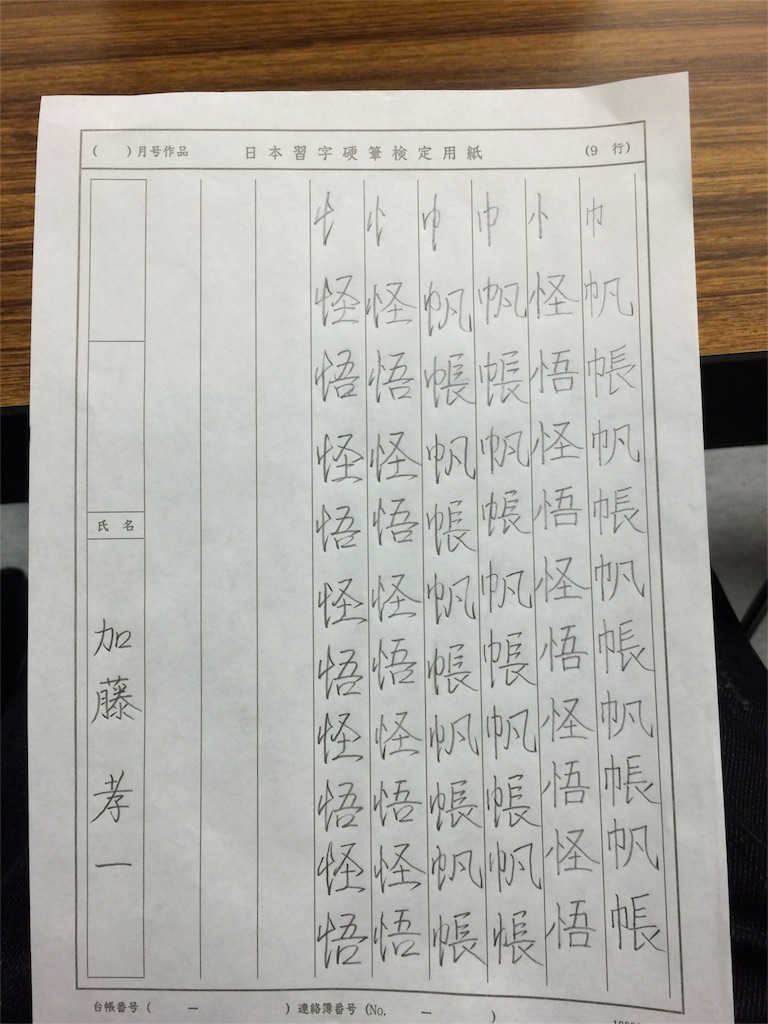 （　）月号作品　日本習字硬筆検定用紙　（9 行）
巾帆帳帆帳帆帳帆帳帆帳
忄怪悟怪悟怪悟怪悟怪悟
巾帆帳帆帳帆帳帆帳帆帳
巾帆帳帆帳帆帳帆帳帆帳
忄怪悟怪悟怪悟怪悟怪悟
忄怪悟怪悟怪悟怪悟怪悟
氏名
加藤孝一
台帳番号（　－　）連絡簿番号（No.　－　）